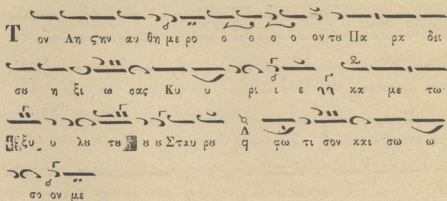 Τ ον Λη ϛην αυ θη με ρο ο ο ο ο ον του Πα ρα δει
σου η ξι ω σας Κυ υ ρι ι ε κα με τω
ξυ υ λου του ου ου Σταυ ρου φω τι σον και σω ω
σο ον με